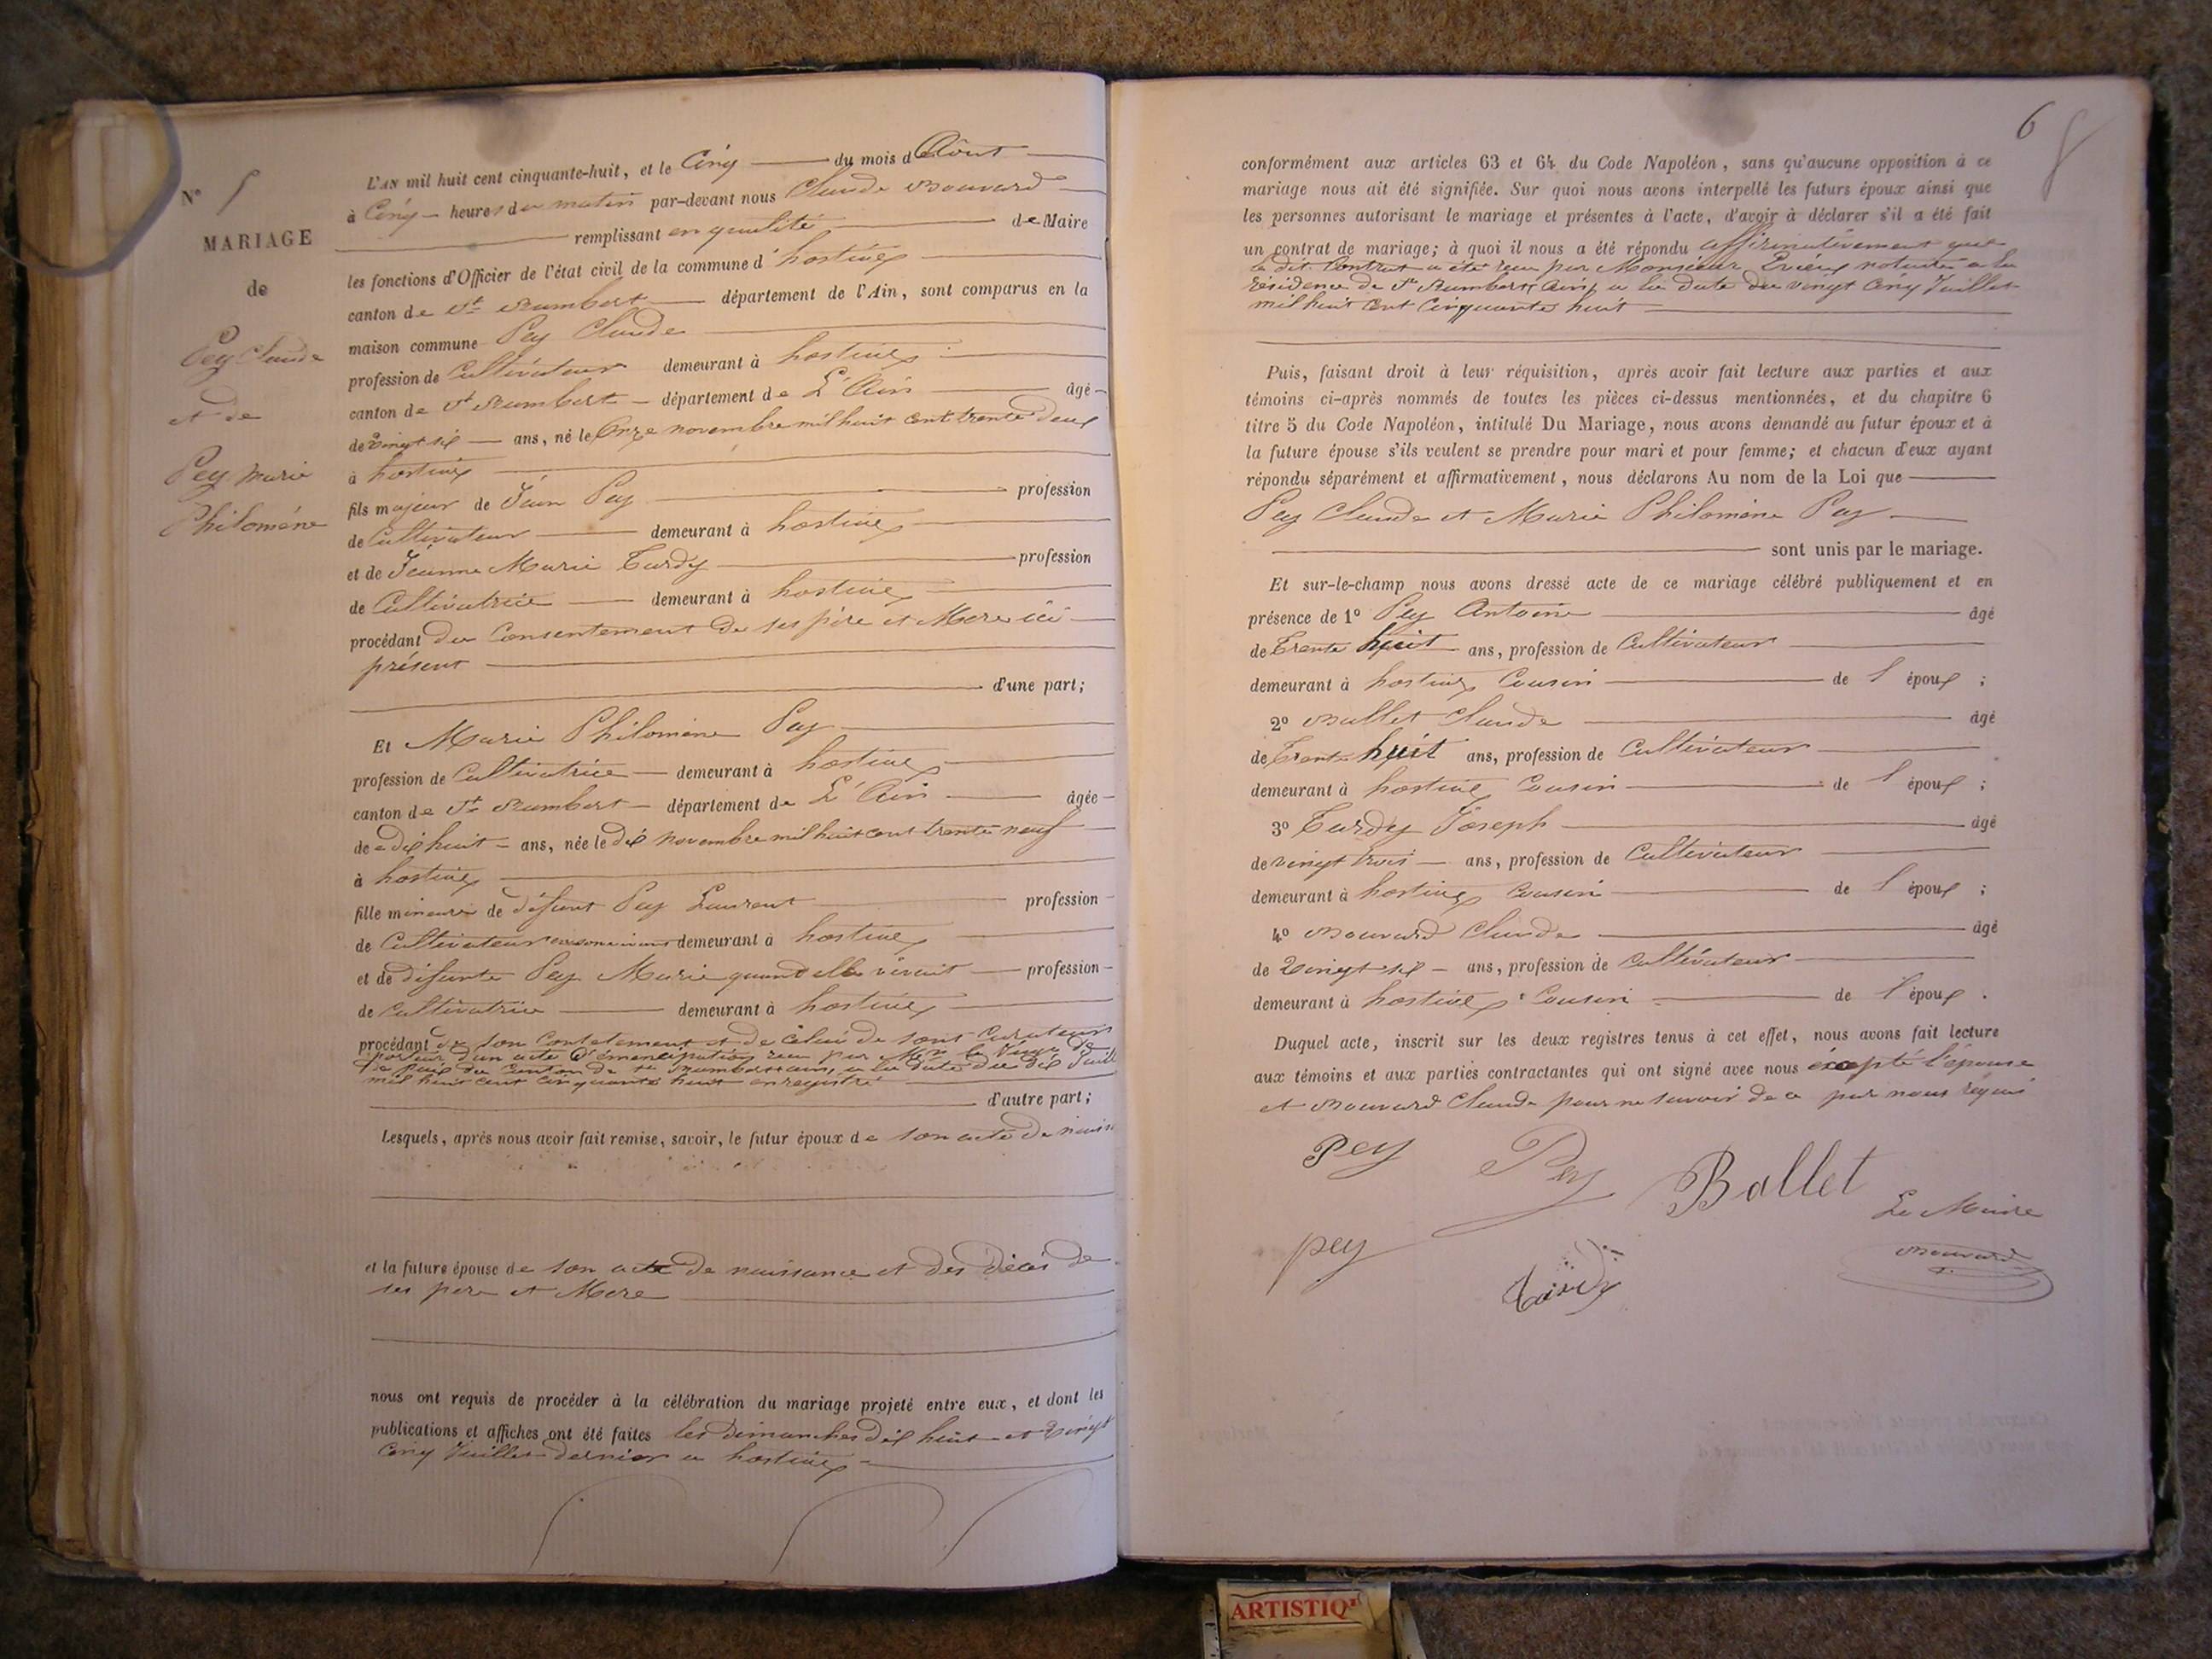 N° 5
MARIAGE
de
Pey Claude
et de
Pey Marie
Philomène
L'AN mil huit cent cinquante-huit, et le Cinq du mois d'Août
à Cinq heures du matin par-devant nous Claude Bouvard
remplissant en qualité de Maire
les fonctions d'Officier de l'état civil de la commune d'hostiaz
canton de St Rambert département de l'Ain, sont comparus en la
maison commune Pey Claude
profession de Cultivateur demeurant à hostiaz
canton de St Rambert département de L'Ain âgé
de vingt six ans, né le Onze novembre mil huit cent trente deux
à hostiaz
fils majeur de Jean Pey profession
de Cultivateur demeurant à hostiaz
et de Jeanne Marie Tardy profession
de Cultivatrice demeurant à hostiaz
procédant du Consentement de ses père et Mere ici
présent
d'une part;
Et Marie Philomène Pey
profession de Cultivatrice demeurant à hostiaz
canton de St Rambert département de L'Ain âgée
de dix huit ans, née le dix novembre mil huit cent trente neuf
à hostiaz
fille mineure de défunt Pey Laurent profession
de Cultivateur demeurant à hostiaz
et de défunte Pey Marie quand elle vivait profession
de cultivatrice demeurant à hostiaz
procédant de son et de celui de sont Curateur
porteur d'un acte d'émancipation recu par le Juge de
Paix du Canton de St Rambert ain, a la date du dix Juill
mil huit cent cinquante huit enregistré
d'autre part;
Lesquels, après nous avoir fait remise, savoir, le futur époux de son acte de naiss
et la future épouse de son acte de naissance et des décès de
ses pere et Mere
nous ont requis de procéder à la célébration du mariage projeté entre eux, et dont les
publications et affiches ont été faites les dimanches dix huit et vingt
cinq Juillet dernier a hostiaz
6
conformément aux articles 63 et 64 du Code Napoléon, sans qu'aucune opposition à ce
mariage nous ait été signifiée. Sur quoi nous avons interpellé les futurs époux ainsi que
les personnes autorisant le mariage et présentes à l'acte, d'avoir à déclarer s'il a été fait
un contrat de mariage; à quoi il nous a été répondu affirmativement que
le dit Contrat a été recu par Monsieur notaire a la
résidence de St Rambert, Ain, a la date du vingt cinq Juillet
mil huit cent cinquante huit
Puis, faisant droit à leur réquisition, après avoir fait lecture aux parties et aux
témoins ci-après nommés de toutes les pièces ci-dessus mentionnées, et du chapitre 6
titre 5 du Code Napoléon, intitulé Du Mariage, nous avons demandé au futur époux et à
la future épouse s'ils veulent se prendre pour mari et pour femme; et chacun d'eux ayant
répondu séparément et affirmativement, nous déclarons Au nom de la Loi que
Pey Claude et Marie Philomène Pey
sont unis par le mariage.
Et sur-le-champ nous avons dressé acte de ce mariage célébré publiquement et en
présence de 1° Pey Antoine âgé
de Trente huit ans, profession de Cultivateur
demeurant à hostiaz Cousin de l'époux ;
2° Ballet Claude âgé
de Trente huit ans, profession de Cultivateur
demeurant à hostiaz Cousin de l'époux ;
3° Tardy Joseph âgé
de vingt trois ans, profession de Cultivateur
demeurant à hostiaz Cousin de l'époux ;
4° Bouvard Claude âgé
de Vingt six ans, profession de Cultivateur
demeurant à hostiaz Cousin de l'époux .
Duquel acte, inscrit sur les deux registres tenus à cet effet, nous avons fait lecture
aux témoins et aux parties contractantes qui ont signé avec nous excepté l'épouse
et Bouvard Claude pour ne savoir de ce par nous requis
Pey Pey Ballet
Le Maire
pey Tardy Bouvard
ARTISTIQ